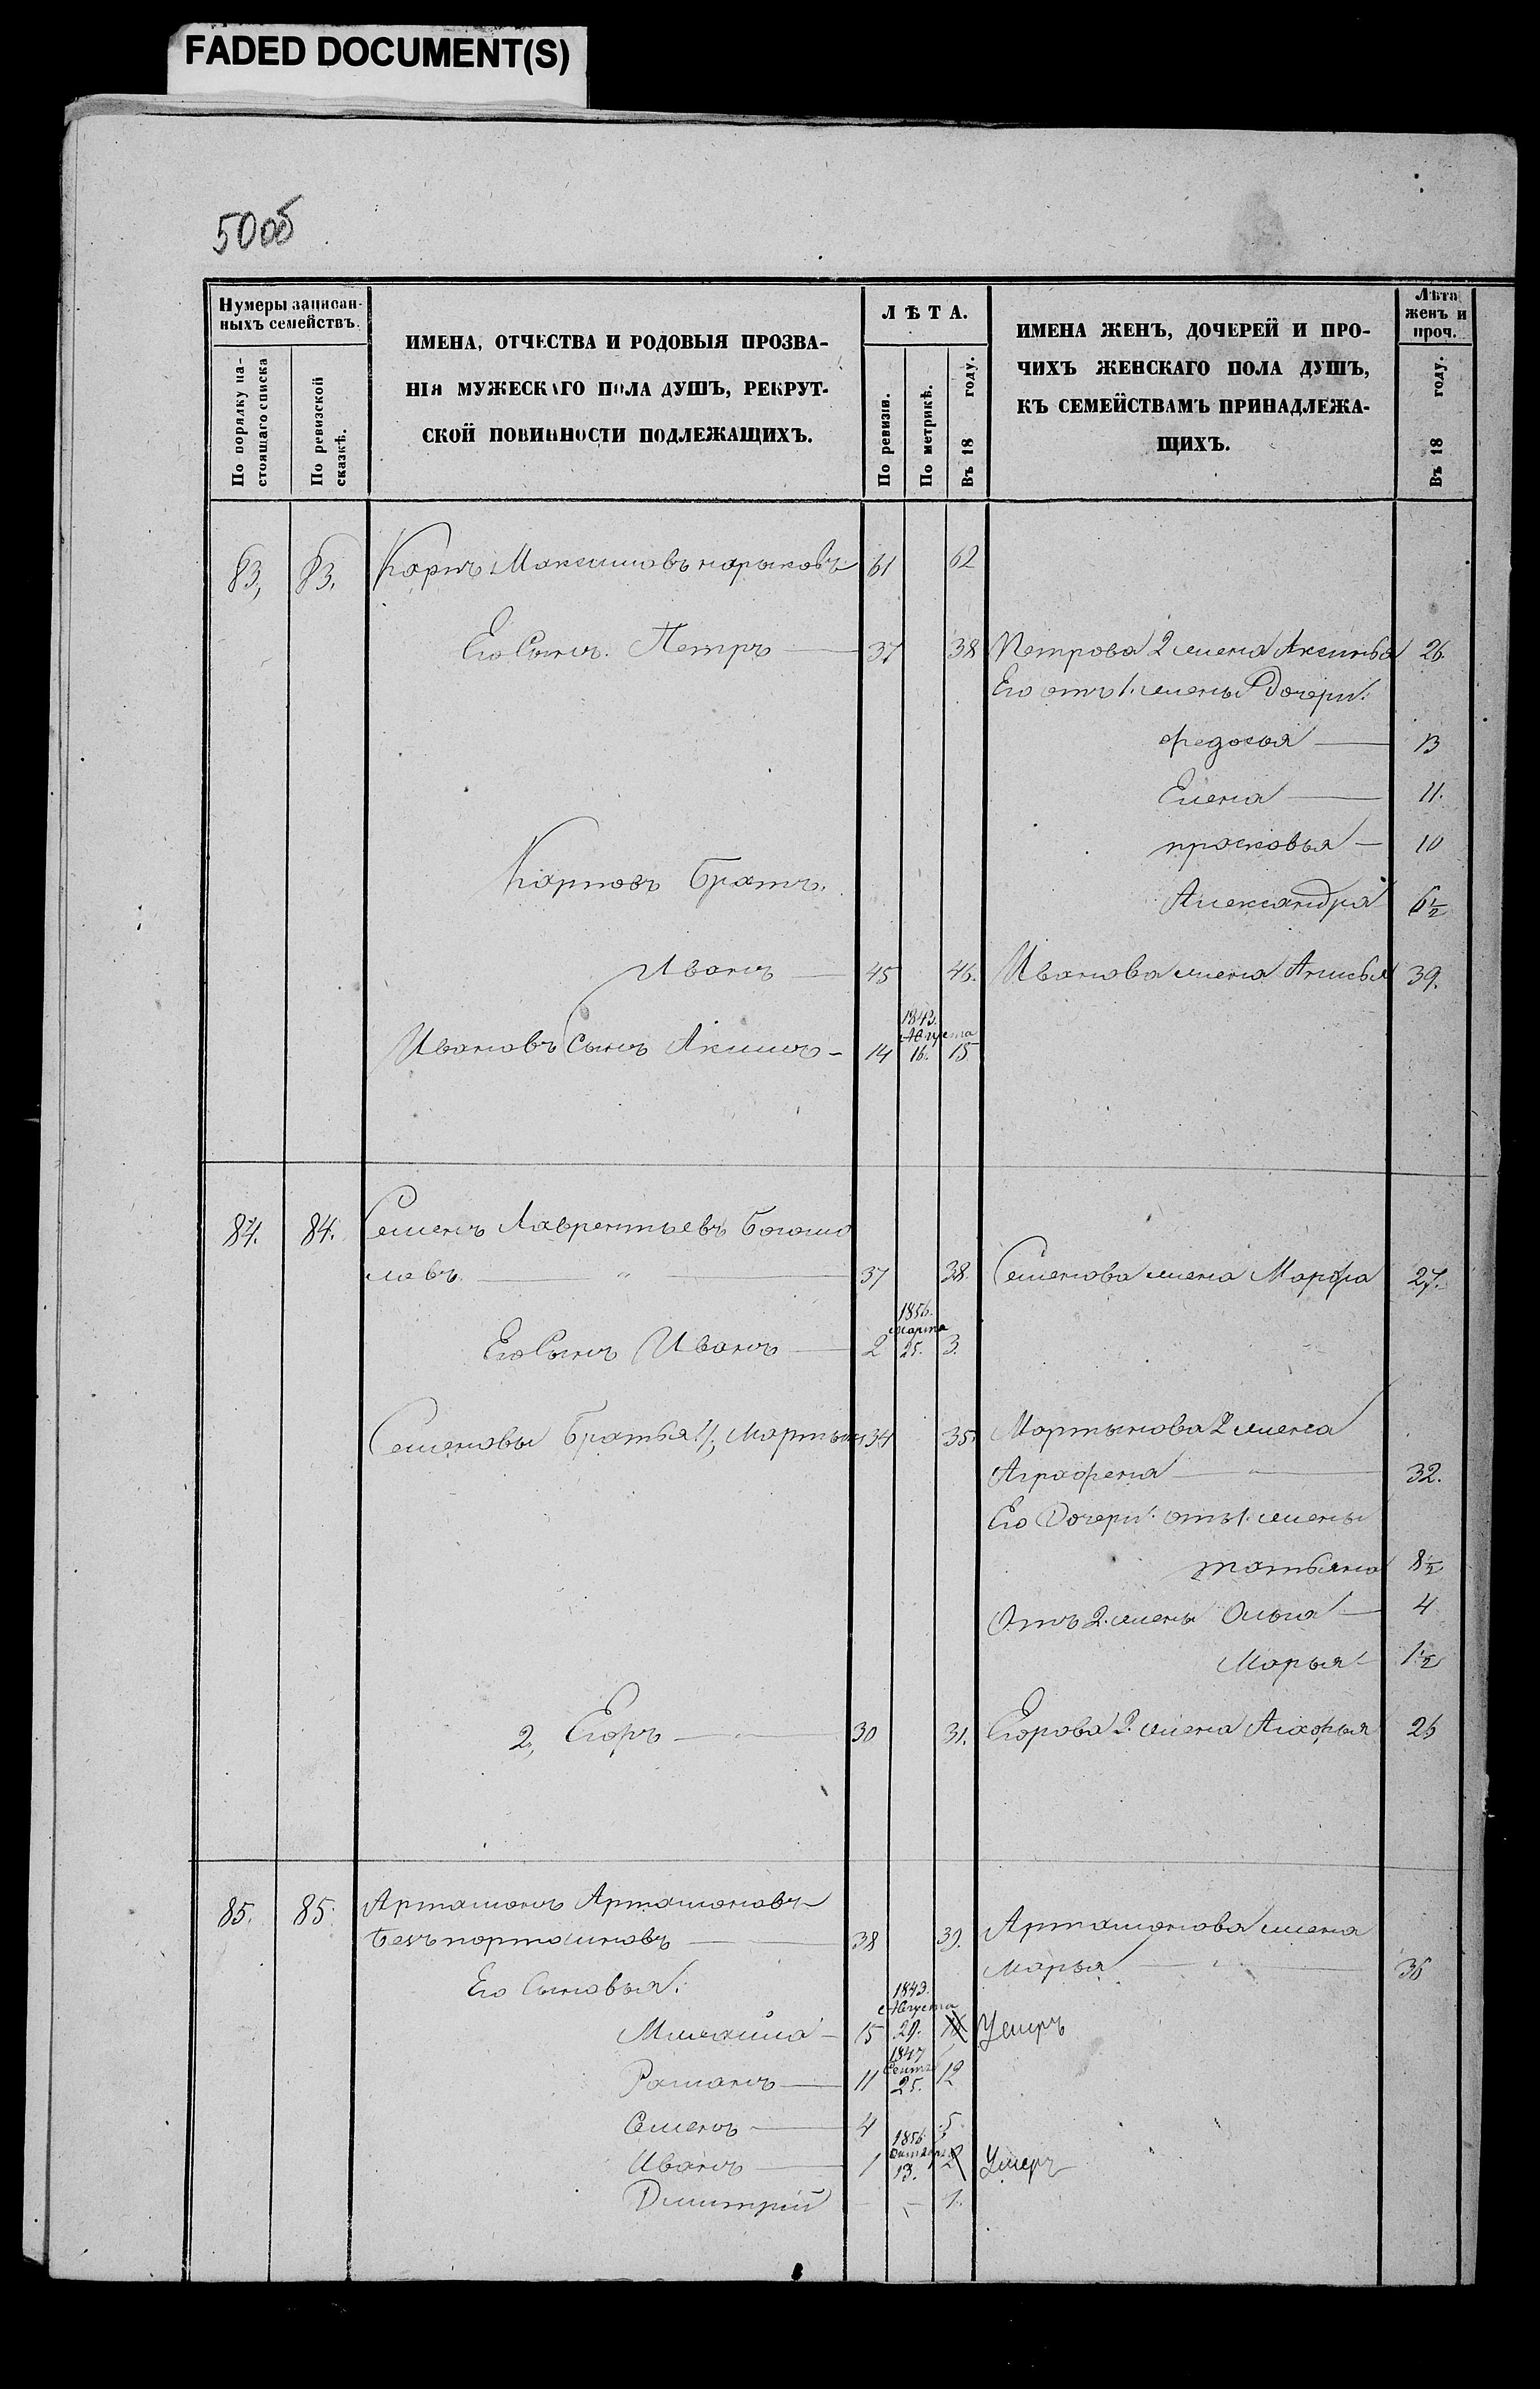 FADED DOCUMENT(S)
50об
Нумеры записан-
ныхъ семействъ.
По порядку на-
стоящаго списка
По ревизской
сказкѣ.
ИМЕНА, ОТЧЕСТВА И РОДОВЫЯ ПРОЗВА-
НІЯ МУЖЕСКАГО ПОЛА ДУШЪ, РЕКРУТ-
СКОЙ ПОВИННОСТИ ПОДЛЕЖАЩИХЪ.
ЛѢТА.
По ревизіи.
По метрикѣ.
Въ 18 году.
ИМЕНА ЖЕНЪ, ДОЧЕРЕЙ И ПРО-
ЧИХЪ ЖЕНСКАГО ПОЛА ДУШЪ,
КЪ СЕМЕЙСТВАМЪ ПРИНАДЛЕЖА-
ЩИХЪ.
Лѣта
женъ и
проч.
Въ 18 году.
83, 83. Карпъ Максимовъ 61 62
Его Сынъ Петръ 37 38 Петрова 2 жена Аксинья 26.
Его отъ 1. жены Дочери:
Федосья 13
Елена 11.
прасковья 10
Карповъ Братъ.
Александра 6½
Иванъ 45 46. Иванова жена Анисья 39.
1843.
Августа
Ивановъ Сынъ Акимъ 14 16. 15
84. 84. Семенъ Лаврентьевъ Богомо
ловъ 37 38. Семенова жена Марфа 27.
1856.
Марта
Его Сынъ Иванъ 2 25. 3.
Семеновы Братья 1, Мартынъ 34 35. Мартынова 2 жена
Аграфена 32.
Его Дочери: отъ 1. жены
татьяна 8½
Отъ 2. жены Ольга 4
Марья 1½
2, Егоръ 30 31. Егорова 2. жена Агафья 26
85. 85. Артамонъ Артамоновъ
38 39. Артамонова жена
Марья 36
Его Сыновья:
1843.
Августа
Михаила 15 29. Умеръ
1847
Романъ 11 25. 12
Семенъ 4 5.
1856
Иванъ 1 13. 2 Умеръ
Дмитрій 1.